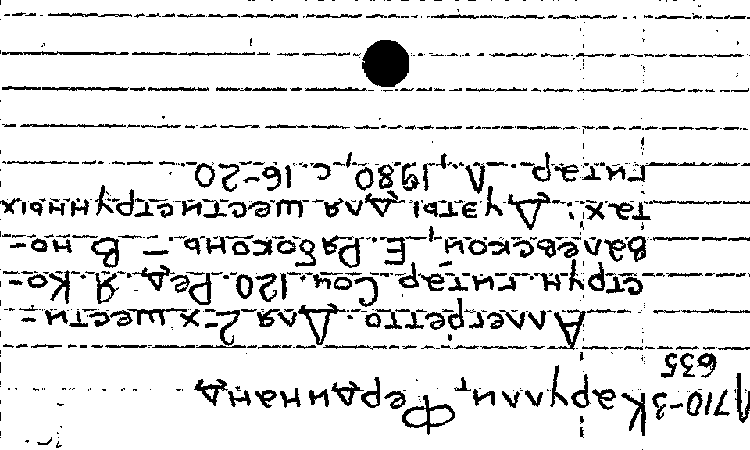 Л710-3 Карулли, Фердинанд
635
Аллегретто. Для 2-х шести-
струн. гитар Соч. 120. Ред. Я. Ко-
валевской, Е. Рябоконь. – В но-
тах: Дуэты для шестиструнных
гитар. Л., 1980, с. 16-20.